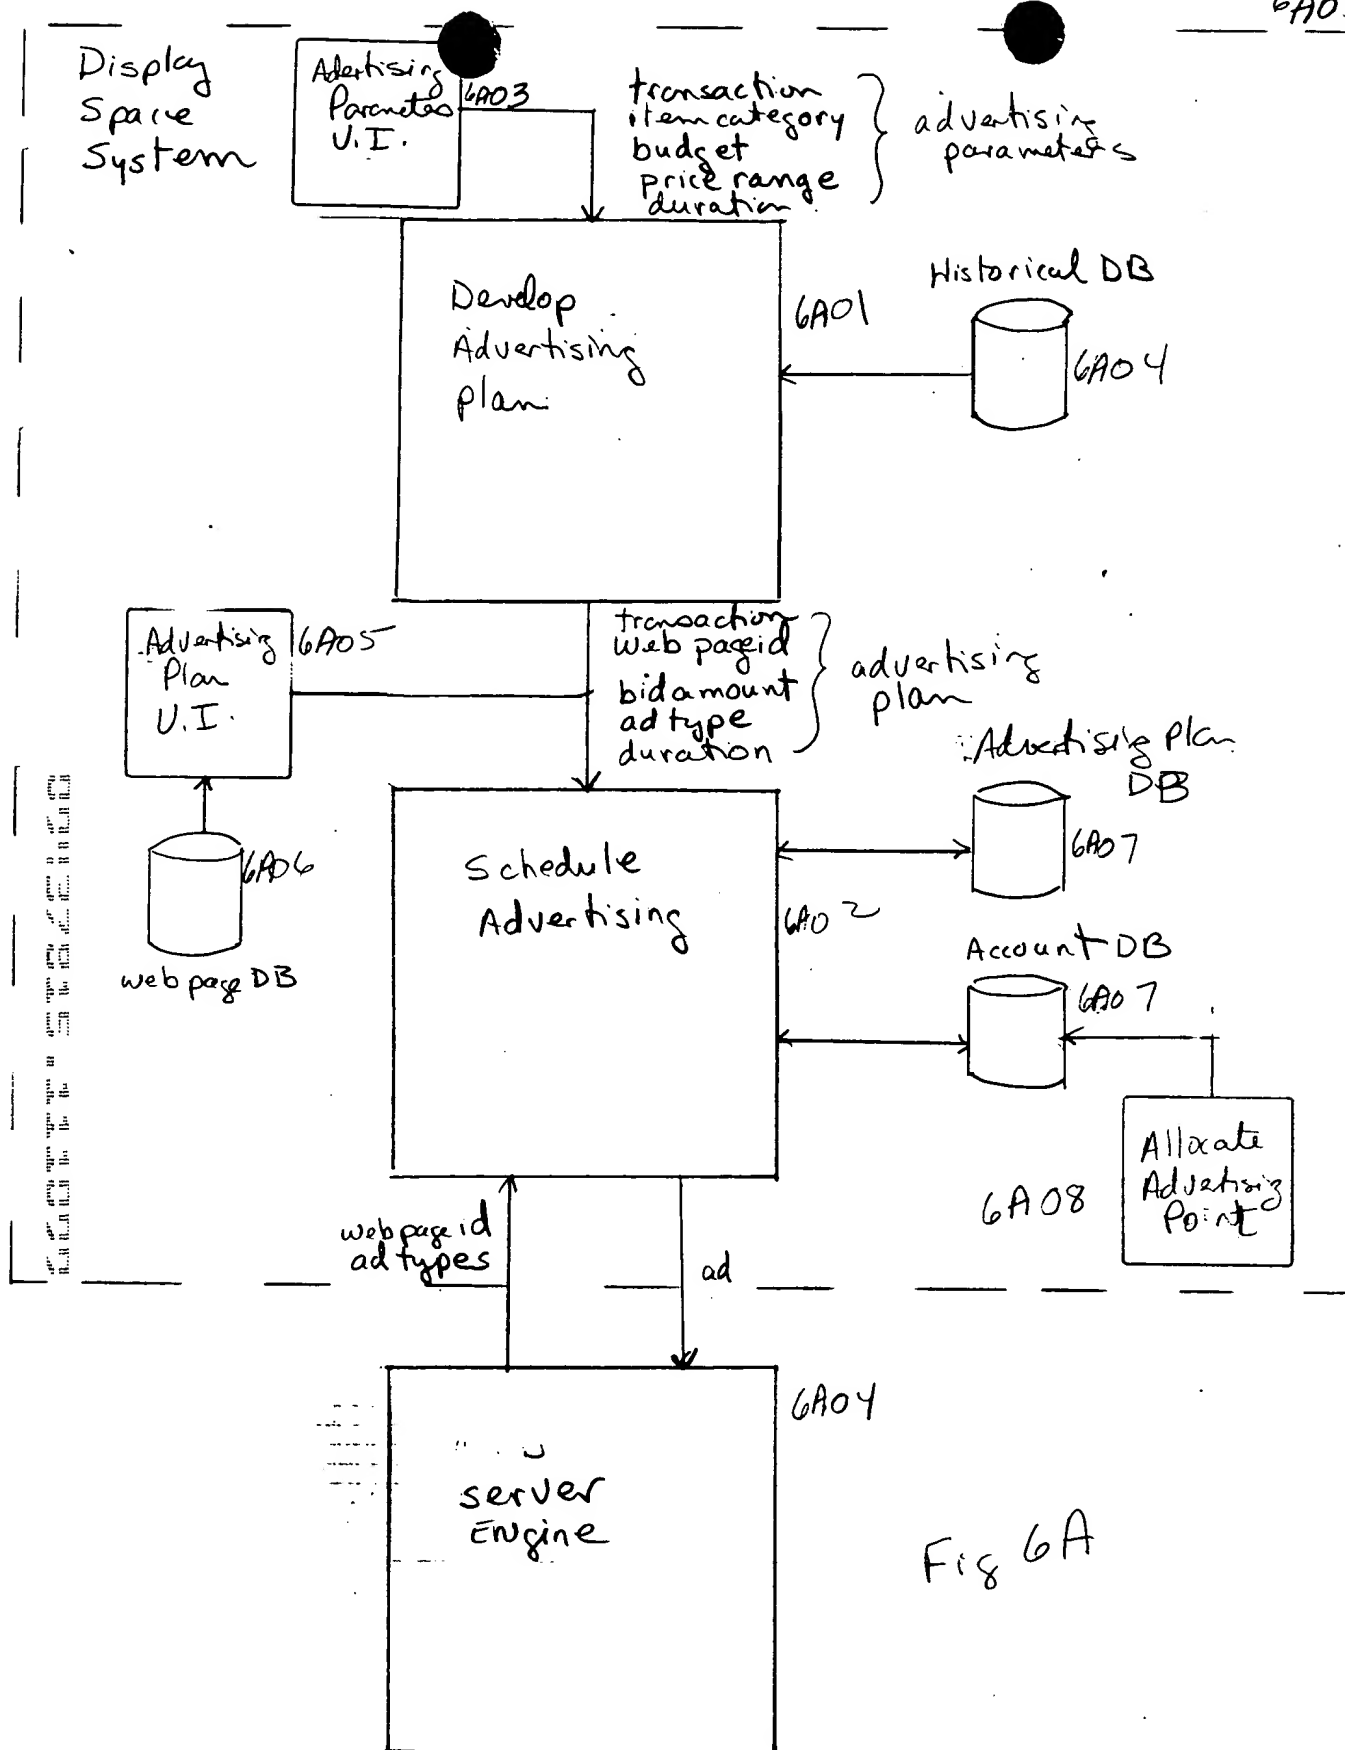 6A0
Display
Space
System
Adertising
Parameters
U.I.
6A03
transaction
item category
budget
price range
duration
advertising
parameters
Develop
Advertising
plan
6A01
Historical DB
6A04
Advertising
Plan
U.I.
6A05
transaction
web page id
bid amount
ad type
duration
advertising
plan
Advertising Plan
DB
6A07
6A06
web page DB
Schedule
Advertising
6A02
Account DB
6A07
Allocate
Advertising
Point
6A08
web page id
ad types
ad
6A04
server
Engine
Fig 6A